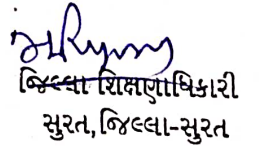 જિલ્લા શિક્ષણાધિકારી
સુરત, જિલ્લા-સુરત